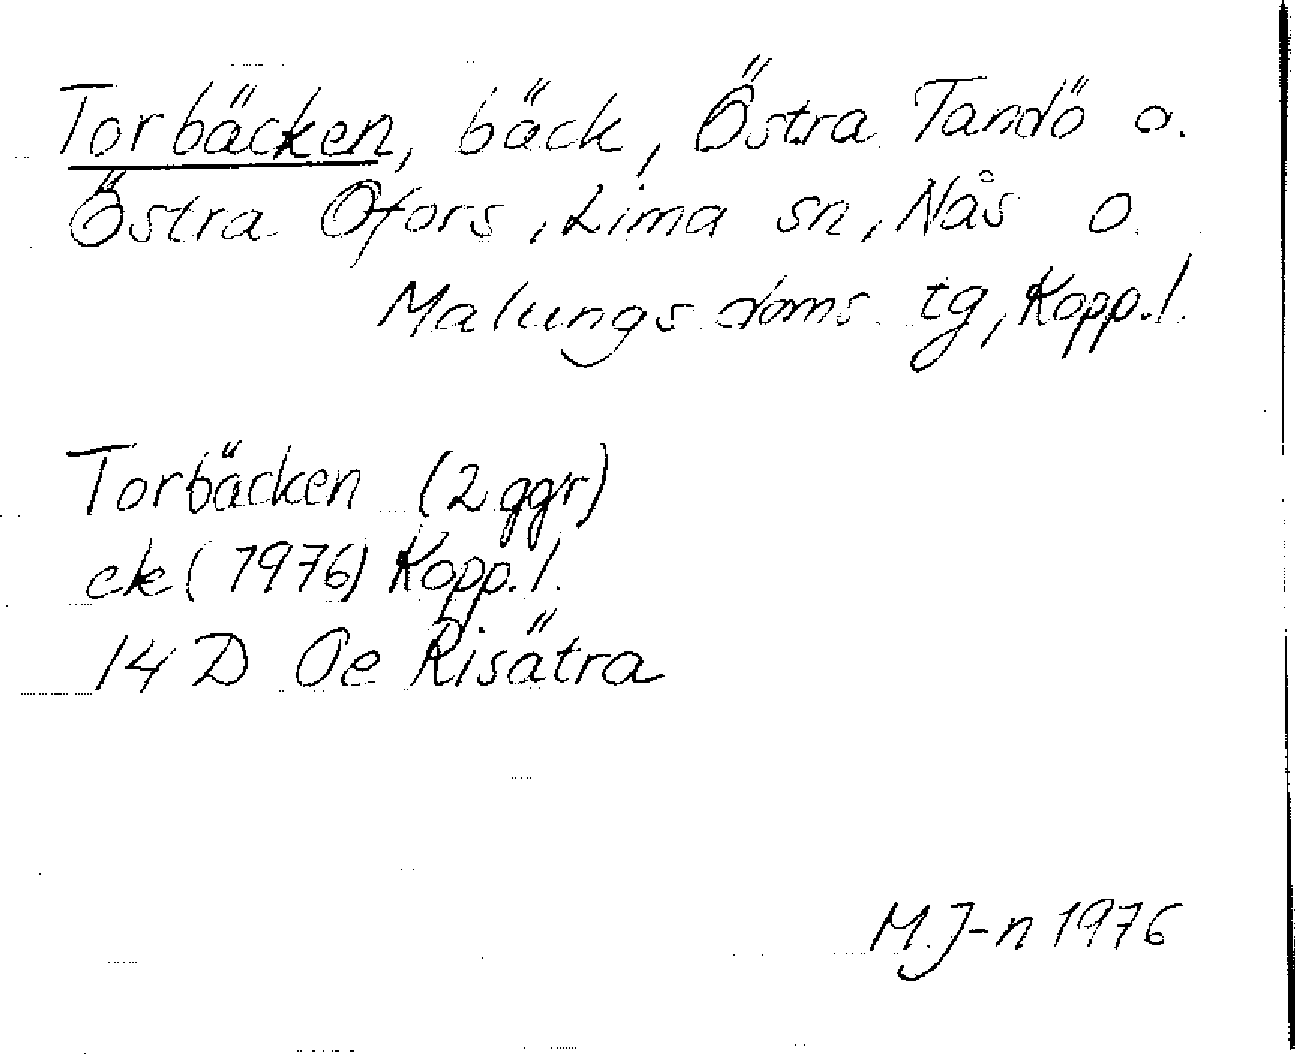 Torbäcken, bäck, Östra Tandö o.
Östra Ofors, Lima sn, Nås o.
Malungs doms. tg, Kopp. l.
Torbäcken (2 ggr)
ek (1976) Kopp. l.
14 D Oe Risätra
M. J-n 1976